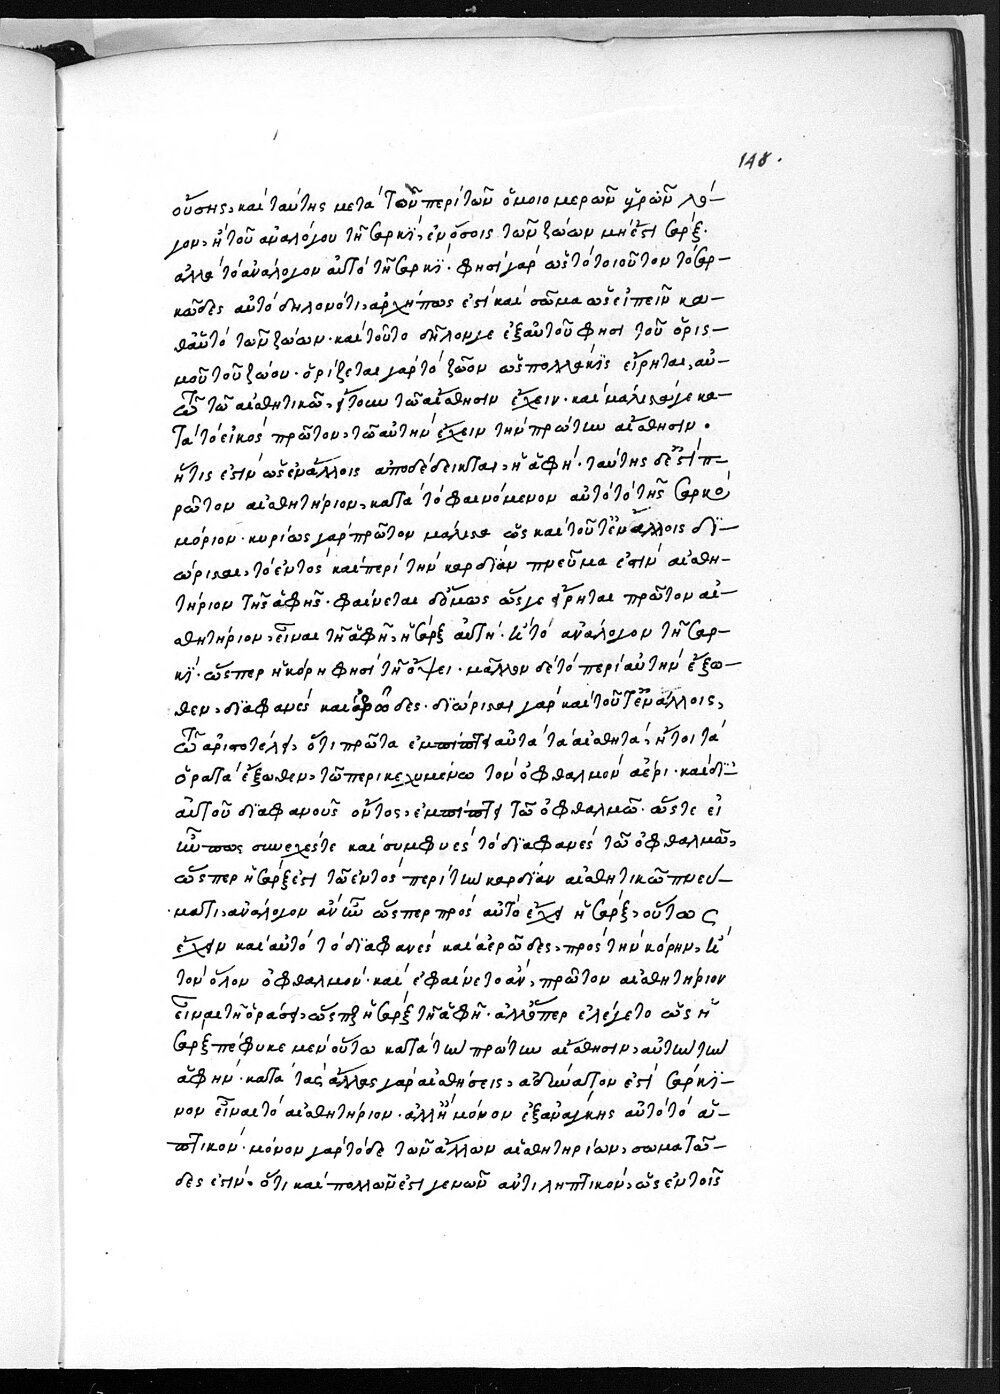 148.
οὔσης, καὶ ταύτης μετὰ τὸν περὶ τῶν ὁμοιομερῶν ὑγρῶν λό-
γον, ἢ τοῦ ἀναλόγου τῇ σαρκὶ, ἐν ὅσοις τῶν ζώων μὴ ἔστι σὰρξ.
ἀλλὰ τὸ ἀνάλογον αὐτὸ τῇ σαρκὶ. φησὶ γὰρ ὡς τὸ τοιοῦτον τὸ σαρ-
κῶδες αὐτὸ δηλονότι, ἀρχή πως ἐστὶ καὶ σῶμα ὡς εἰπεῖν κα-
θαὑτὸ τῶν ζώων. καὶ τοῦτο δῆλόν γε ἐξ αὐτοῦ φησι τοῦ ὁρισ-
μοῦ τοῦ ζώου. ὁρίζεται γὰρ τὸ ζῶον ὡς πολλάκις εἴρηται, αὐ-
τῷ τῷ αἰσθητικῷ, ἤτοι τῷ αἴσθησιν ἔχειν. καὶ μάλιστά γε κα-
τὰ τὸ εἰκὸς πρῶτον, τῷ αὐτὴν ἔχειν τὴν πρώτην αἴσθησιν.
ἥτις ἐστὶν ὡς ἐν ἄλλοις ἀποδέδεικται, ἡ ἁφή. ταύτης δ' ἐστὶ π-
ρῶτον αἰσθητήριον, κατὰ τὸ φαινόμενον αὐτὸ τὸ τῆς σαρκὸς
μόριον. κυρίως γὰρ πρῶτον μάλιστα ὡς καὶ τοῦτ' ἐν ἄλλοις δι-
ώρισται, τὸ ἐντὸς καὶ περὶ τὴν καρδίαν πνεῦμα ἐστὶν αἰσθη-
τήριον τῆς ἁφῆς. φαίνεται δ' ὅμως ὥς γε εἴρηται πρῶτον αἰ-
σθητήριον, εἶναι τῇ ἁφῇ, ἡ σὰρξ αὐτή. ἢ τὸ ἀνάλογον τῇ σαρ-
κὶ. ὥσπερ ἡ κόρη φησὶ τῇ ὄψει. μᾶλλον δὲ τὸ περὶ αὐτὴν ἔξω-
θεν, διαφανὲς καὶ ἀερῶδες. διώρισται γὰρ καὶ τοῦτ' ἐν ἄλλοις,
τῷ ἀριστοτέλει, ὅτι πρῶτα ἐμπίπτει αὐτὰ τὰ αἰσθητὰ, ἤτοι τὰ
ὁρατὰ ἔξωθεν, τῷ περικεχυμένῳ τὸν ὀφθαλμὸν ἀέρι. καὶ δι'
αὐτοῦ διαφανοῦς ὄντος, ἐμπίπτει τῷ ὀφθαλμῷ. ὥστε εἰ
ἦν πως συνεχές τε καὶ συμφυὲς τὸ διαφανὲς τῷ ὀφθαλμῷ,
ὥσπερ ἡ σὰρξ ἐστὶ τῷ ἐντὸς περὶ τὴν καρδίαν αἰσθητικῷ πνεύ-
ματι, ἀνάλογον ἂν ἦν ὥσπερ πρὸς αὐτὸ ἔχει ἡ σὰρξ, οὕτως
ἔχειν καὶ αὐτὸ τὸ διαφανὲς καὶ ἀερῶδες, πρὸς τὴν κόρην, ἢ
τὸν ὅλον ὀφθαλμὸν. καὶ ἐφαίνετο ἂν, πρῶτον αἰσθητήριον
εἶναι τῇ ὁράσει, ὥσπερ ἡ σὰρξ τῇ ἁφῇ. ἀλλ' ὅπερ ἐλέγετο ὡς ἡ
σὰρξ πέφυκε μὲν οὕτω κατὰ τὴν πρώτην αἴσθησιν, αὐτὴν τὴν
ἁφήν. κατὰ τὰς ἄλλας γὰρ αἰσθήσεις, ἀδύνατον ἐστὶ σάρκι-
νον εἶναι τὸ αἰσθητήριον. ἀλλ' ἢ μόνον ἐξ ἀνάγκης αὐτὸ τὸ ἁ-
πτικόν. μόνον γὰρ τόδε τῶν ἄλλων αἰσθητηρίων, σωματῶ-
δες ἐστὶν. ὅτι καὶ πολλῶν ἐστὶ γενῶν ἀντιληπτικόν, ὡς ἐν τοῖς